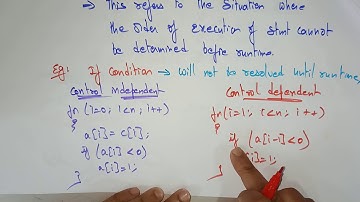 → This refers to the situation where
the order of execution of stmt cannot
be determined before runtime.
Eg: If Condition → will not be resolved until runtime,
Control Independent
for (i=0; i<n; i++)
{
a[i] = c[i];
if (a[i]<0)
a[i]=1;
}
Control dependent
for (i=1; i<n; i++)
{
if (a[i-1]<0)
[i]=1;
}